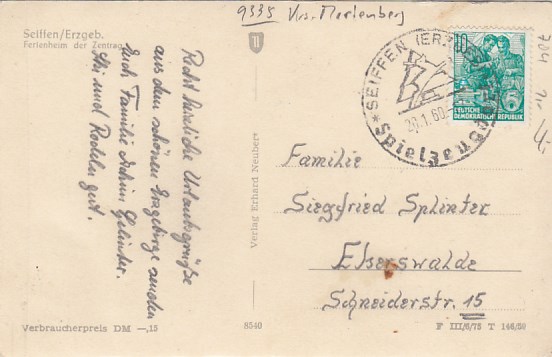 9335 Krs. Marienberg
Seiffen/Erzgeb.
Ferienheim der Zentrag
Recht herzliche Urlaubsgrüße
aus dem schönen Erzgebirge senden
Euch Familie Achim Gelinder.
Ski und Rodeln gut.
Verlag Erhard Neubert
SEIFFEN (ERZGEB)
20.1.60
Spielzeug
10
DEUTSCHE
DEMOKRATISCHE REPUBLIK
Familie
Siegfried Splinter
Eberswalde
Schneiderstr. 15
Verbraucherpreis DM —,15
8540
F III/6/75 T 146/59